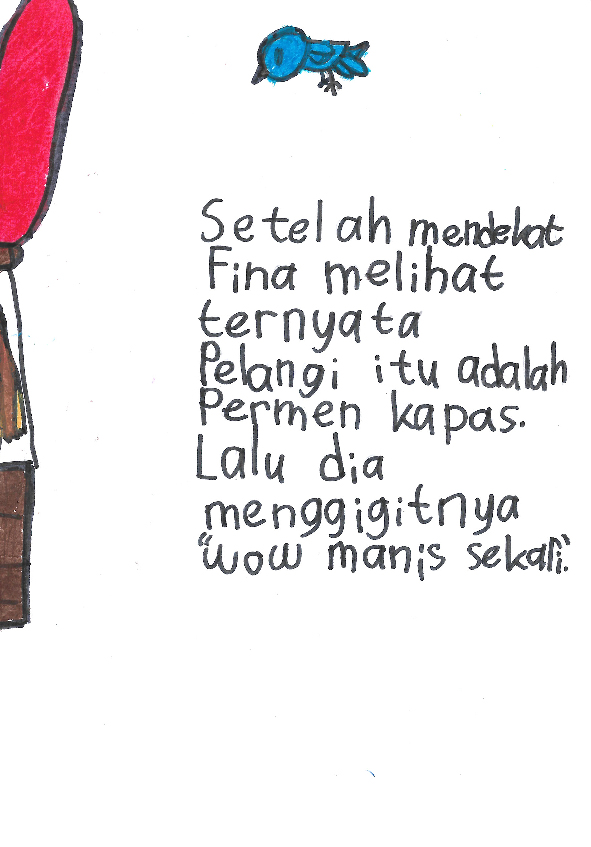 Setelah mendekat
Fina melihat
ternyata
Pelangi itu adalah
Permen kapas.
Lalu dia
menggigitnya
"wow manis sekali."